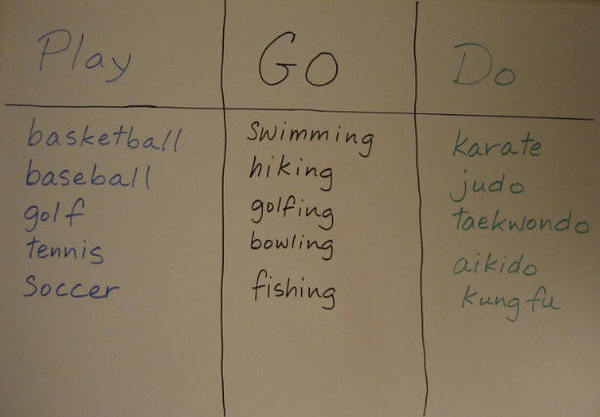 Play
basketball
baseball
golf
tennis
Soccer
Go
Swimming
hiking
golfing
bowling
fishing
Do
karate
judo
taekwondo
aikido
kung fu